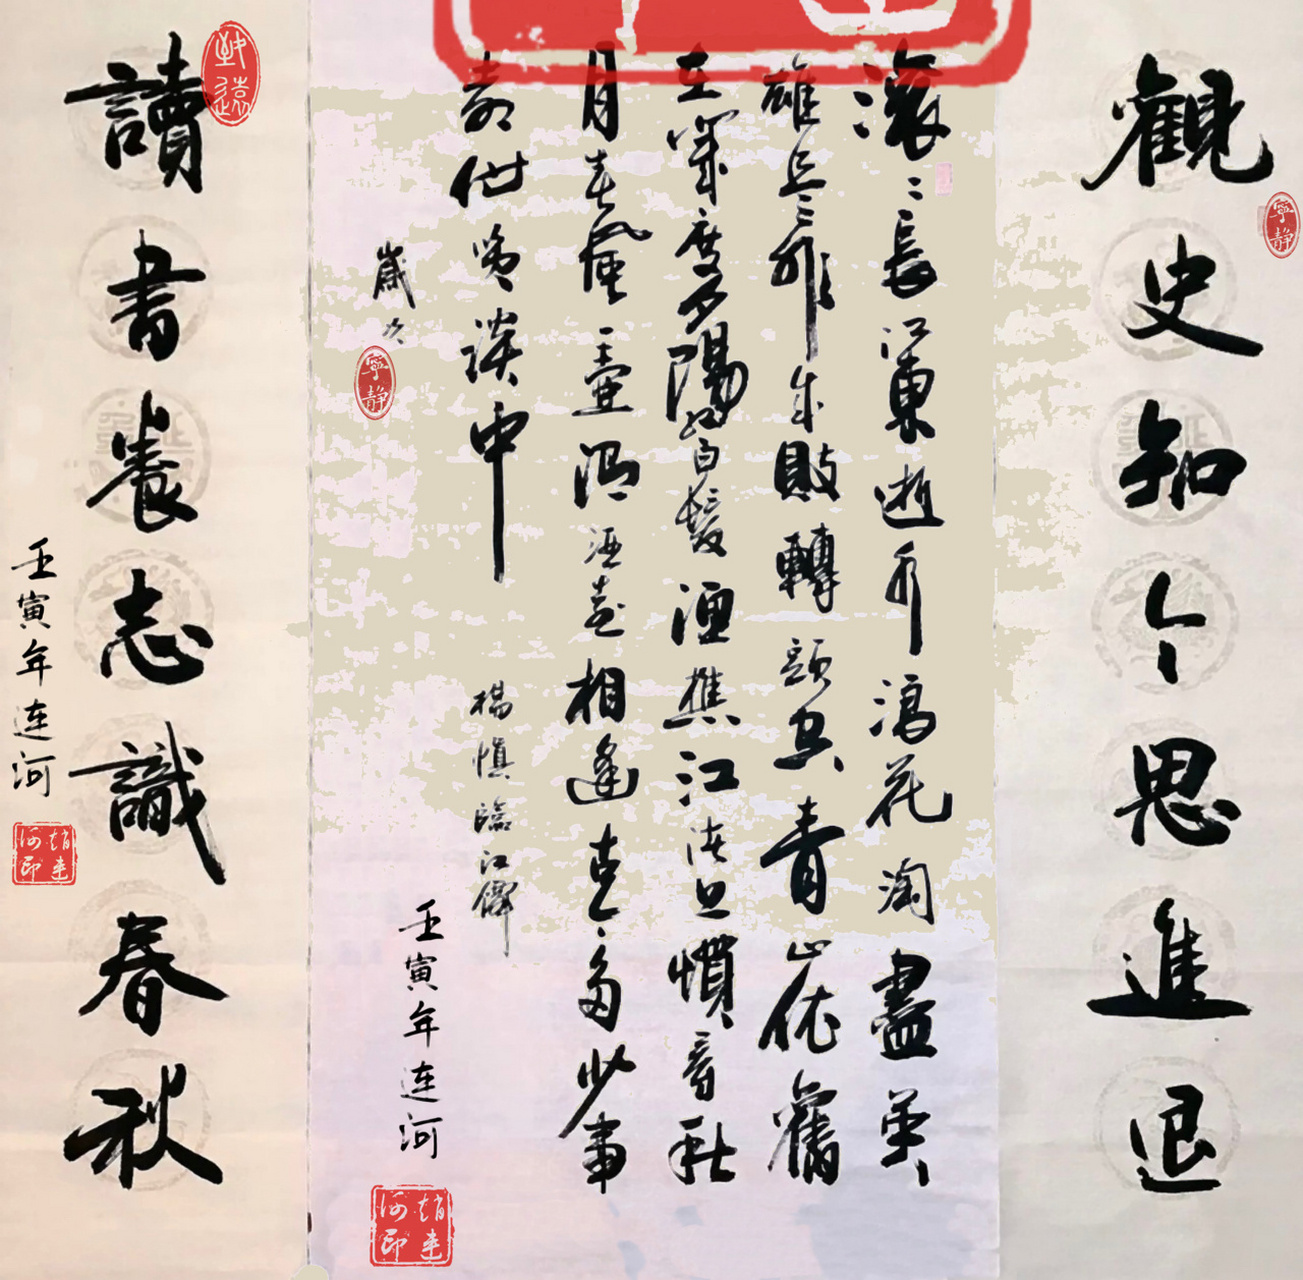 觀史知今思進退
寧静
滚々長江東逝水浪花淘盡英
雄是非成敗轉頭空青山依舊
在幾度夕陽紅白髮漁樵江渚上慣看秋
月春風一壺濁酒喜相逢古今多少事
都付笑談中
楊慎臨江僊
歲次
寧静
壬寅年连河
趙連河印
讀書養志識春秋
致遠
壬寅年连河
趙連河印